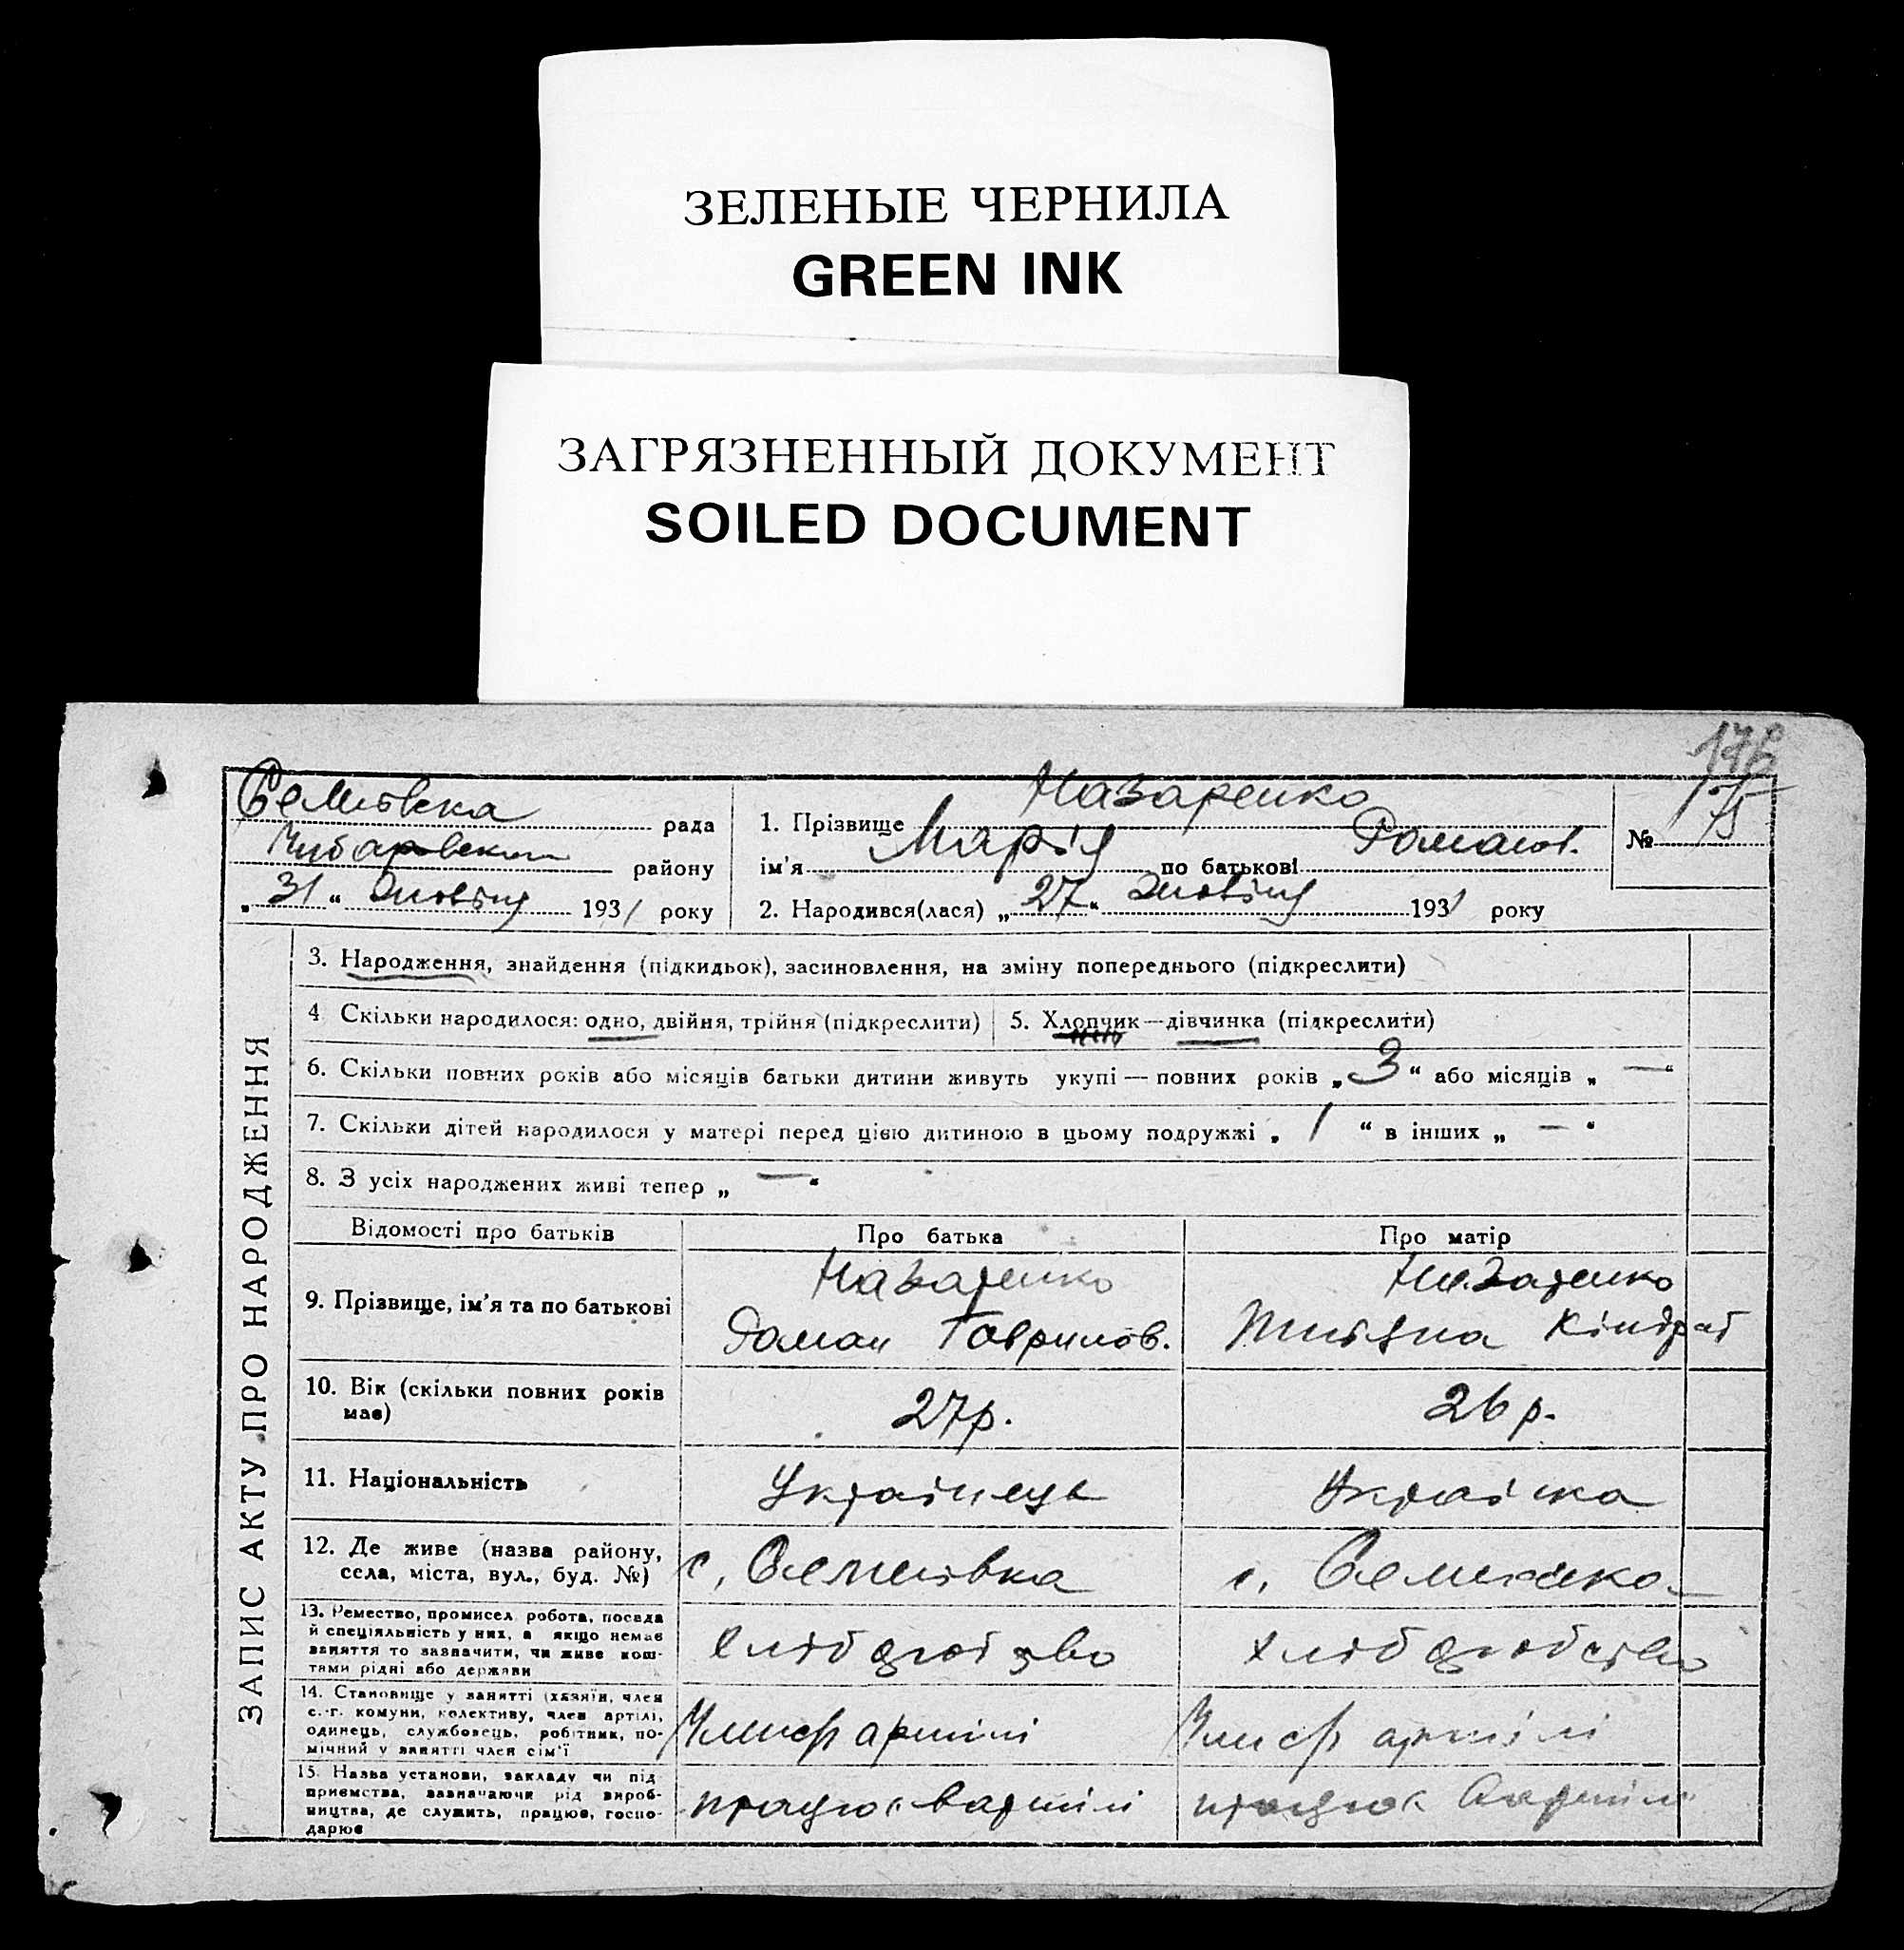 ЗЕЛЕНЫЕ ЧЕРНИЛА
GREEN INK
ЗАГРЯЗНЕННЫЙ ДОКУМЕНТ
SOILED DOCUMENT
175
рада
Чубаровськ району
„31“ Жовтня 1931 року
1. Прізвище Назаренко
ім'я Марія по батькові Романов.
2. Народився(лася) „27“ Жовтня 1931 року
№
ЗАПИС АКТУ ПРО НАРОДЖЕННЯ
3. Народження, знайдення (підкидьок), засиновлення, на зміну попереднього (підкреслити)
4 Скільки народилося: одно, двійня, трійня (підкреслити)
5. Хлопчик—дівчинка (підкреслити)
6. Скільки повних років або місяців батьки дитини живуть укупі — повних років „3“ або місяців „—“
7. Скільки дітей народилося у матері перед цією дитиною в цьому подружжі „1“ в інших „—“
8. З усіх народжених живі тепер „—“
Відомості про батьків
Про батька
Про матір
9. Прізвище, ім'я та по батькові
Назаренко
Роман Гаврилов.
Назаренко
Кіндрат
10. Вік (скільки повних років
має)
27р.
26р.
11. Національність
Українець
Українка
12. Де живе (назва району,
села, міста, вул., буд. №)
с.
с.
13. Ремество, промисел, робота, посада
й спеціяльність у них, а якщо немає
заняття то зазначити, чи живе кош-
тами рідні або держави
хліборобство
14. Становище у занятті (хазяїн, член
с.-г. комуни, колективу, член артілі,
одинець, службовець, робітник, по-
мічний у занятті член сім'ї
артілі
артілі
15. Назва установи, закладу чи під
приємства, зазначаючи рід вироб-
ництва, де служить, працює, госпо-
дарює
працює в артілі
працює в артілі